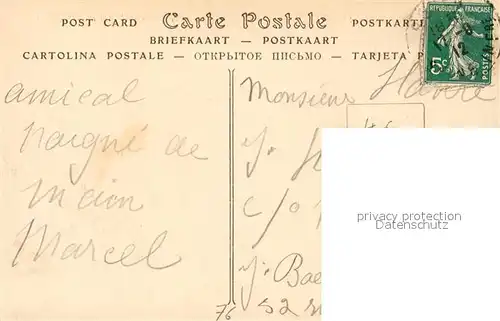 POST CARD Carte Postale POSTKARTE
BRIEFKAART — POSTKAART
CARTOLINA POSTALE — ОТКРЫТОЕ ПИСЬМО — TARJETA P
RÉPUBLIQUE FRANÇAISE
5c
POSTES
amical
poigné de
main
Marcel
Monsieur
Havre
c/o
J. Bae
52
76
privacy protection
Datenschutz